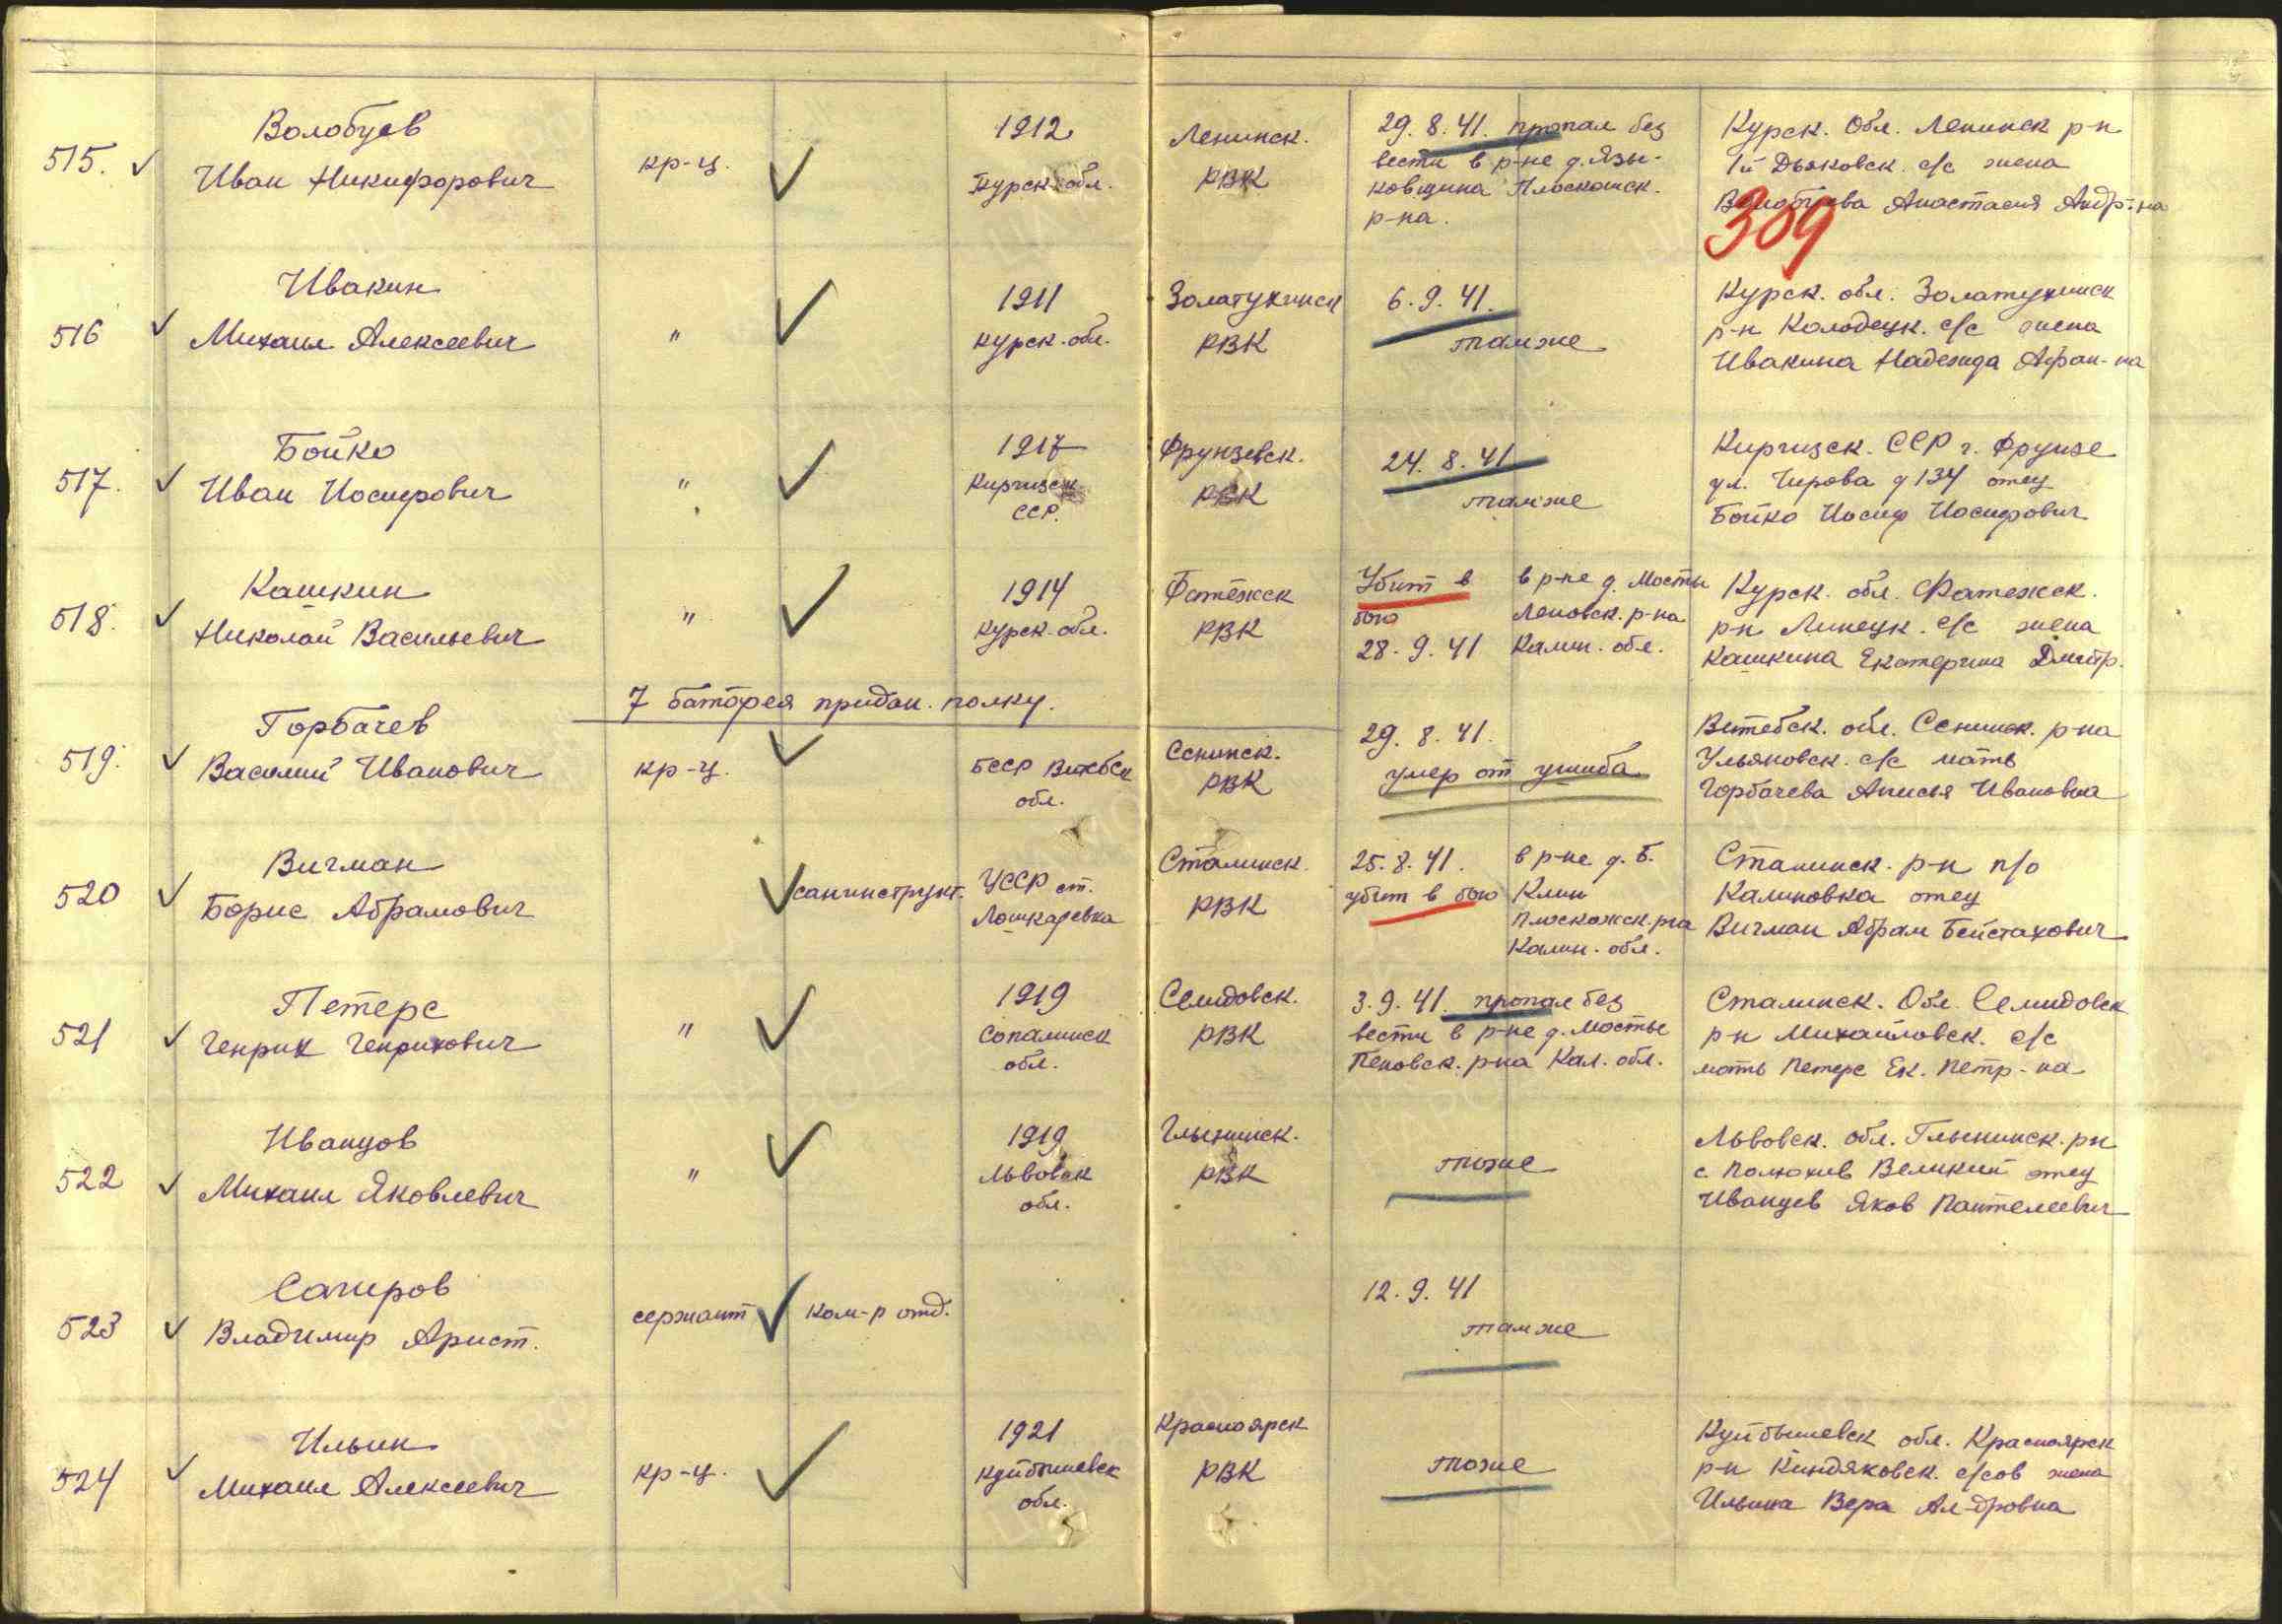 Волобуев
515.
Иван Никифорович
кр-ц.
1912
Курск. обл.
Ленинск.
РВК
29. 8. 41. пропал без
вести в р-не д. Язы-
ковщина Плоскошск.
р-на.
Курск. Обл. Ленинск р-н
1й Дьяковск. с/с жена
Волобуева Анастасия Андр-на
309
Ивакин
516
Михаил Алексеевич
"
1911
Курск. обл.
Золатухинск
РВК
6. 9. 41.
там же
Курск. обл. Золатухинск
р-н Колодецк. с/с жена
Ивакина Надежда Афан-на
Бойко
517.
Иван Иосифович
"
1917
Киргизск.
ССР.
Фрунзевск.
РВК
24. 8. 41
там же
Киргизск. ССР г. Фрунзе
ул. Кирова д 134 отец
Бойко Иосиф Иосифович
Кашкин
518.
Николай Васильевич
"
1914
Курск. обл.
Фатежск
РВК
Убит в
бою
28. 9. 41
в р-не д. Мосты
Пеновск. р-на
Калин. обл.
Курск. обл. Фатежск.
р-н Липецк. с/с жена
Кашкина Екатерина Дмитр.
7 батарея придан. полку.
Горбачев
519.
Василий Иванович
кр-ц.
БССР Витебск
обл.
Сенинск.
РВК
29. 8. 41.
умер от ушиба
Витебск. обл. Сенинск. р-на
Ульяновск. с/с мать
Горбачева Анисья Ивановна
Вигман
520
Борис Абрамович
санинструкт.
УССР ст.
Лошкаревка
Сталинск.
РВК
25. 8. 41.
убит в бою
в р-не д. Б.
Клин
Плоскошск. р-на
Калин. обл.
Сталинск. р-н п/о
Калиновка отец
Вигман Абрам
Петерс
521
Генрих Генрихович
"
1919
Сталинск
обл.
Селидовск.
РВК
3. 9. 41. пропал без
вести в р-не д. Мосты
Пеновск. р-на Кал. обл.
Сталинск. Обл. Селидовск
р-н Михайловск. с/с
мать Петерс Ек. Петр-на
Иванцов
522
Михаил Яковлевич
"
1919
Львовск
обл.
Глынинск.
РВК
тоже
Львовск. обл. Глынинск. р-н
с Полюхив Великий отец
Иванцев Яков Пантелеевич
Сагиров
523
Владимир Арист.
сержант
ком-р отд.
12. 9. 41
там же
Ильин
524
Михаил Алексеевич
кр-ц.
1921
Куйбышевск
обл.
Красноярск
РВК
тоже
Куйбышевск обл. Красноярск
р-н Киндяковск. с/сов жена
Ильина Вера Ал-дровна